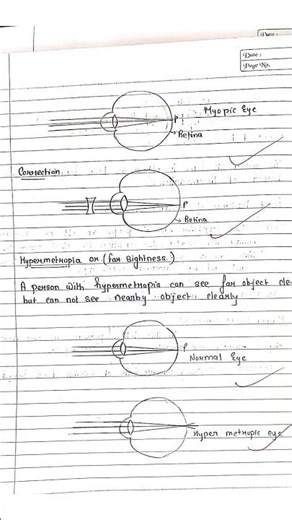 Date :
Date :
Page No.
P
Myopic Eye
Retina
Correction
P
Retina
Hypermetropia or (far sightness)
A person with hypermetropia can see far object cle
but can not see nearby object clearly
P
Normal Eye
Hyper metropic eye